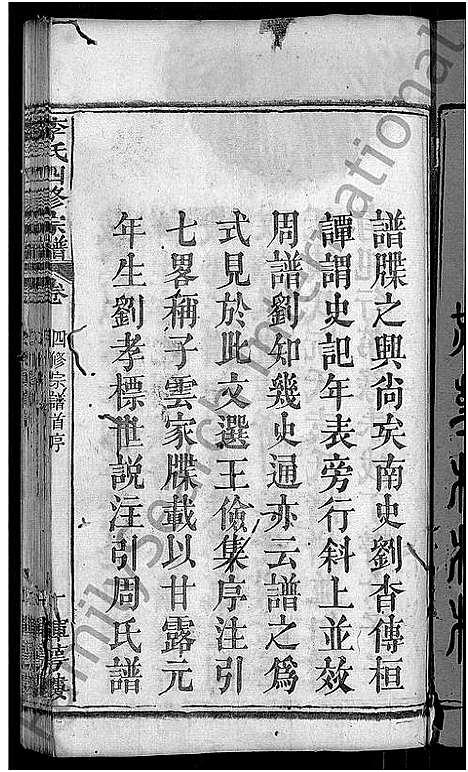 譜牒之興尚矣南史劉杳傳桓
譚謂史記年表旁行斜上並效
周譜劉知幾史通亦云譜之為
式見於此文選王儉集序注引
七畧稱子雲家牒載以甘露元
年生劉孝標世説注引周氏譜
李氏四修宗譜
卷
四修宗譜首序
Family Search International